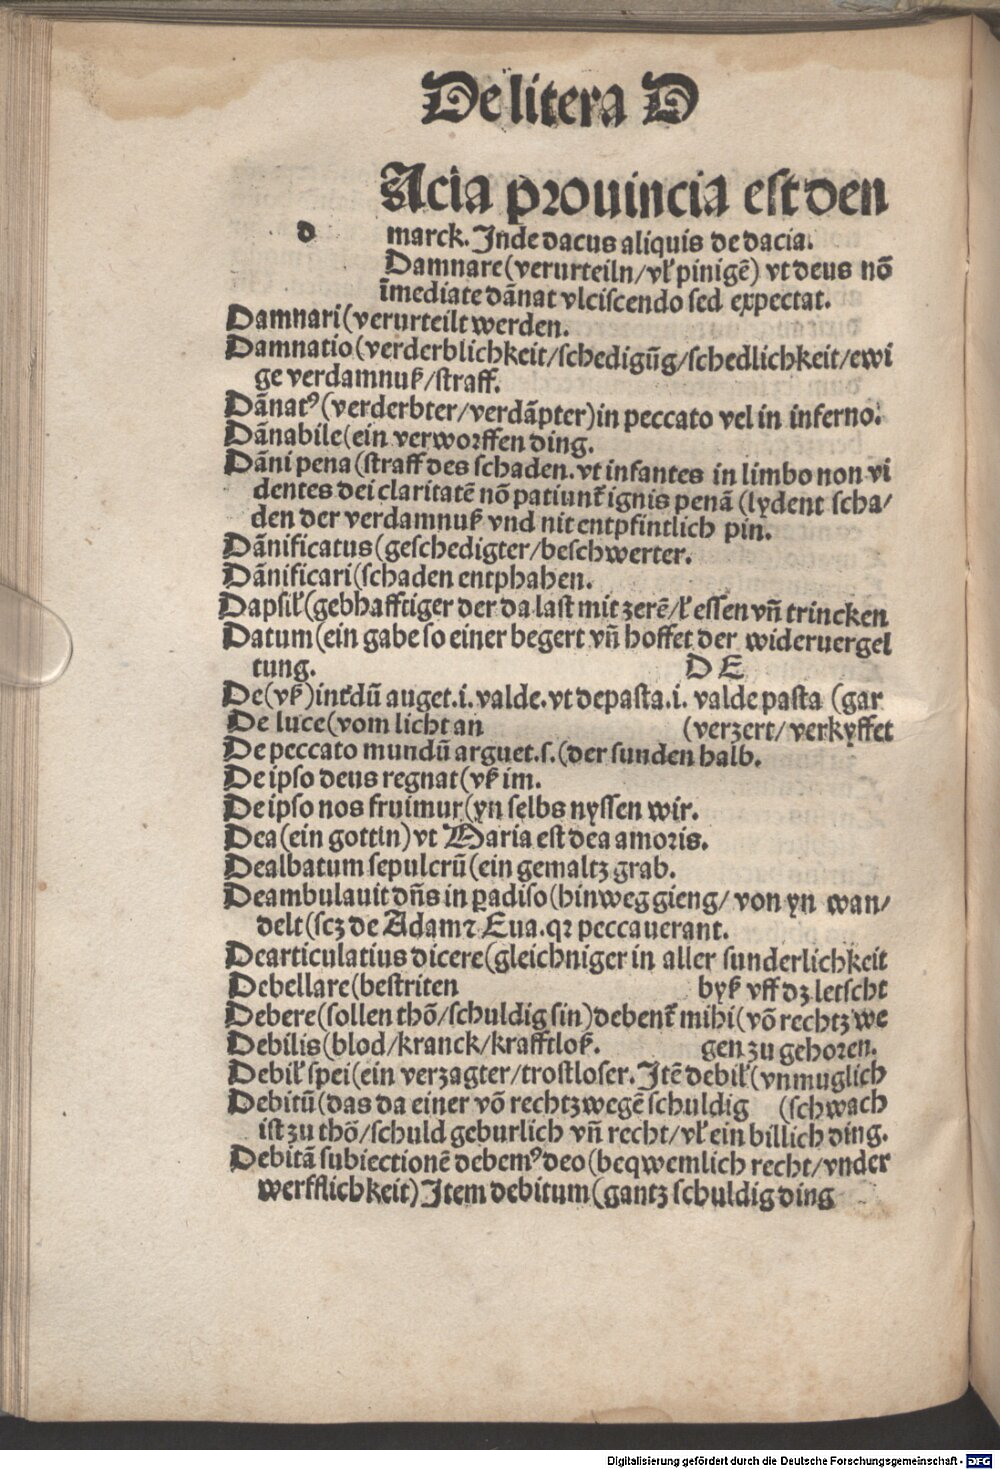 De litera D
Acia prouincia est den
d
marck. Inde dacus aliquis de dacia.
Damnare (verurteiln/vł pinigē) vt deus nō
īmediate dānat vlciscendo sed expectat.
Damnari (verurteilt werden.
Damnatio (verderblichkeit/schedigūg/schedlichkeit/ewi
ge verdamnuß/straff.
Dānatꝰ (verderbter/verdāpter) in peccato vel in inferno.
Dānabile (ein verworffen ding.
Dāni pena (straff des schaden. vt infantes in limbo non vi
dentes dei claritatē nō patiunt᷑ ignis penā (lydent scha/
den der verdamnuß vnd nit entpfintlich pin.
Dānificatus (geschedigter/beschwerter.
Dānificari (schaden entphahen.
Dapsił (gebhafftiger der da last mit zerē/ł essen vn̄ trincken
Datum (ein gabe so einer begert vn̄ hoffet der wideruergel
tung.
D E
De (vß) int᷑dū auget .i. valde. vt depasta .i. valde pasta (gar
De luce (vom licht an (verzert/verkyffet
De peccato mundū arguet .s. (der sunden halb.
De ipso deus regnat (vß im.
De ipso nos fruimur (yn selbs nyssen wir.
Dea (ein gottin) vt Maria est dea amoris.
Dealbatum sepulcrū (ein gemaltz grab.
Deambulauit dn̄s in ꝑadiso (hinweg gieng/ von yn wan/
delt (scꝫ de Adam ⁊ Eua. qꝛ peccauerant.
Dearticulatius dicere (gleichniger in aller sunderlichkeit
Debellare (bestriten byß vff dz letscht
Debere (sollen thō/schuldig sin) debent᷑ mihi (vō rechtz we
Debilis (blod/kranck/krafftloß. gen zu gehoren.
Debił spei (ein verzagter/trostloser. Itē debił (vnmuglich
Debitū (das da einer vō rechtz wegē schuldig (schwach
ist zu thō/schuld geburlich vn̄ recht/vł ein billich ding.
Debitā subiectionē debemꝰ deo (beqwemlich recht/vnder
werfflichkeit) Item debitum (gantz schuldig ding
Digitalisierung gefördert durch die Deutsche Forschungsgemeinschaft - DFG